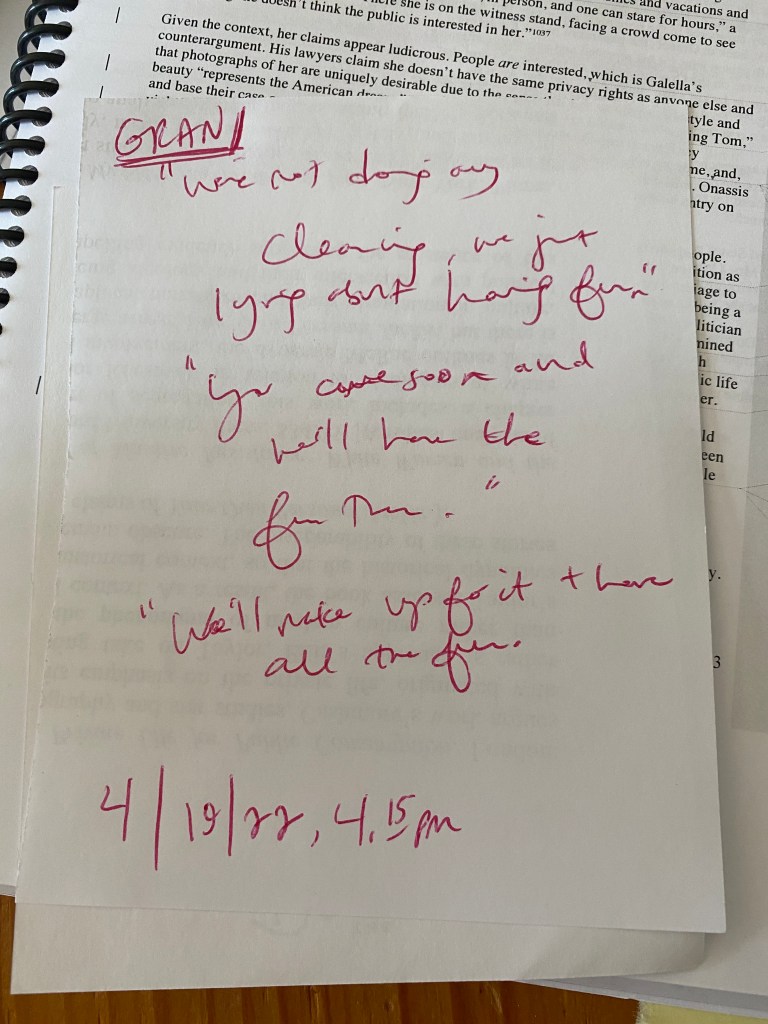 doesn't think the public is interested in her."1037
she is on the witness stand, facing a crowd come to see
person, and one can stare for hours," a
and vacations and
Given the context, her claims appear ludicrous. People are interested, which is Galella's
counterargument. His lawyers claim she doesn't have the same privacy rights as anyone else and
that photographs of her are uniquely desirable due to the
beauty "represents the American
and base their case
style and
ing Tom,"
y
me, and,
. Onassis
ntry on
ople.
ition as
iage to
being a
litician
mined
h
ic life
er.
ld
een
le
y.
3
GRAN
"We're not doing any
Cleaning, we just
lying about having fun"
"You come soon and
we'll have the
fun then."
"We'll make up for it + have
all the fun.
4/19/22, 4.15pm